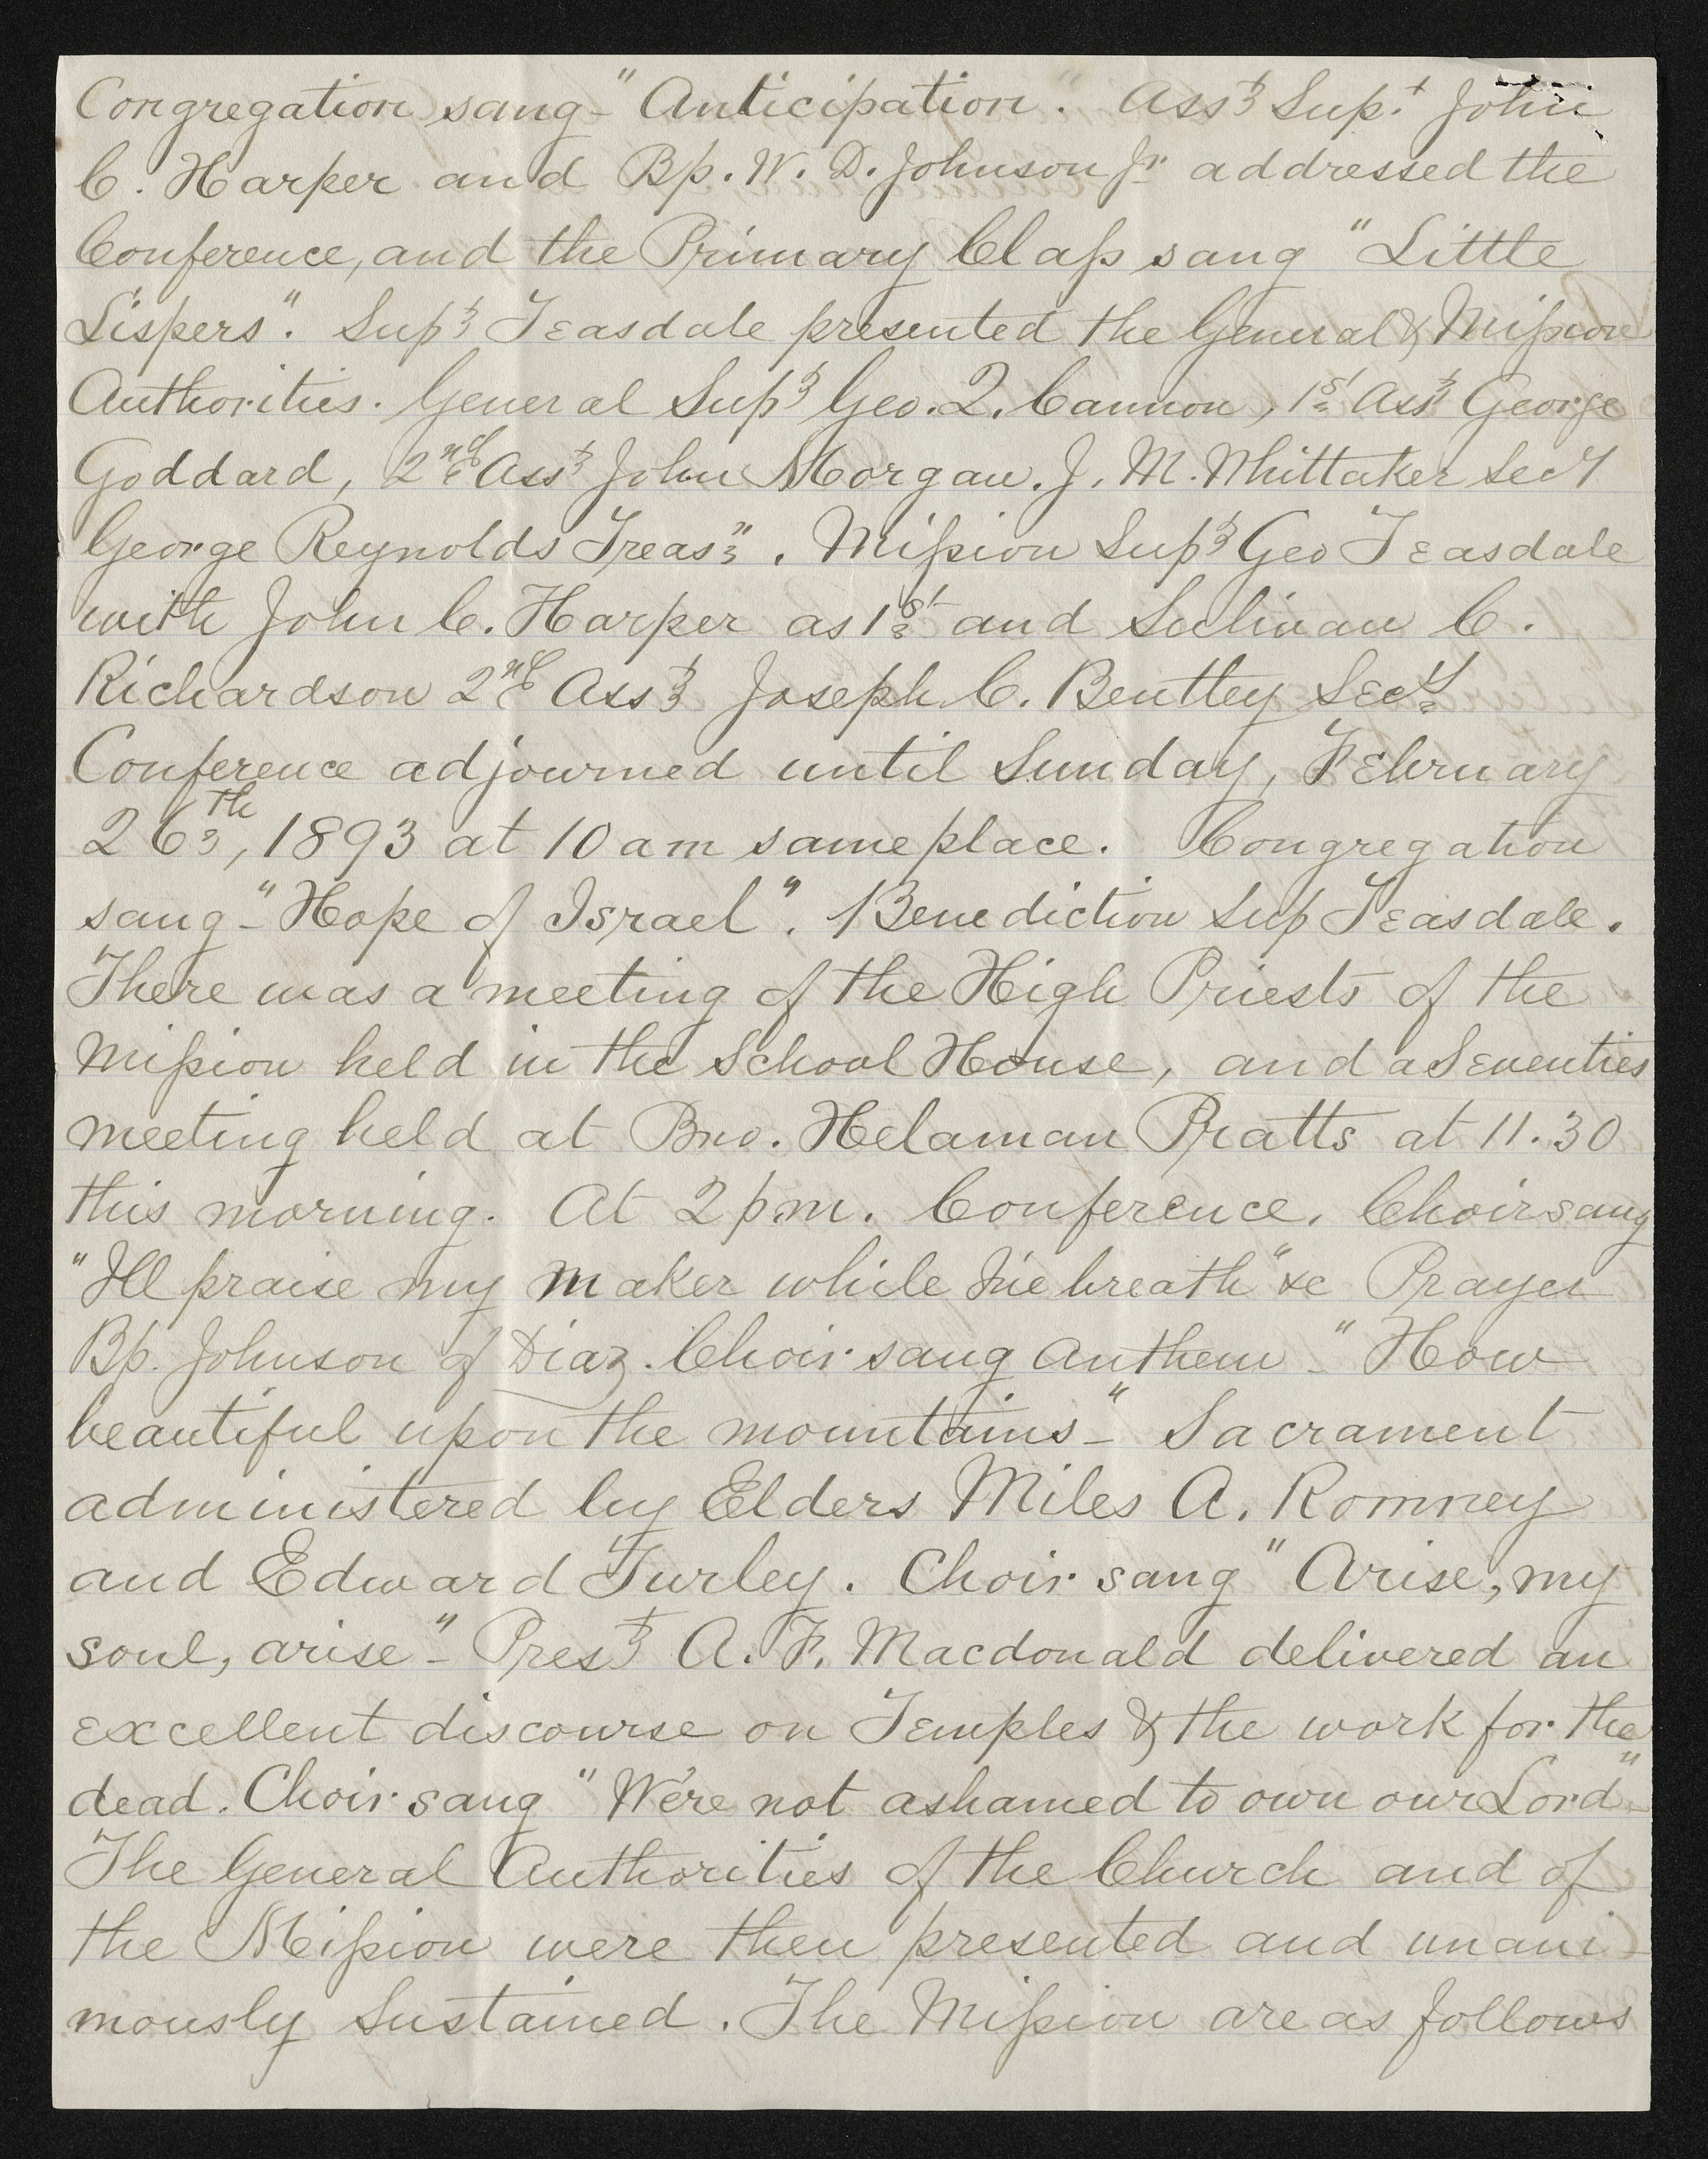 Congregation sang - "Anticipation." Asst Supt John
C. Harper and Bp. W. D. Johnson Jr addressed the
Conference, and the Primary Class sang "Little
Lispers". Supt Teasdale presented the General & Mission
Authorities. General Supt Geo. Q. Cannon, 1st Asst George
Goddard, 2nd Asst John Morgan. J. M. Whittaker Secy
George Reynolds Treasr. Mission Supt Geo Teasdale
with John C. Harper as 1st and Sullivan C.
Richardson 2nd Asst Joseph C. Bentley Secy
Conference adjourned until Sunday, February
26th, 1893 at 10 am same place. Congregation
sang - "Hope of Israel". Benediction Sup Teasdale.
There was a meeting of the High Priests of the
Mission held in the School House, and a Seventies
meeting held at Bro. Helaman Pratts at 11.30
this morning. At 2 p.m. Conference. Choir sang
"Ill praise my maker while I've breath" &c Prayer
Bp. Johnson of Diaz. Choir sang anthem - "How
beautiful upon the mountains -" Sacrament
administered by Elders Miles A. Romney
and Edward Turley. Choir sang "Arise, my
soul, arise" - Prest A. F. Macdonald delivered an
excellent discourse on Temples & the work for the
dead. Choir sang "We're not ashamed to own our Lord" -
The General Authorities of the Church and of
the Mission were then presented and unani-
mously sustained. The Mission are as follows